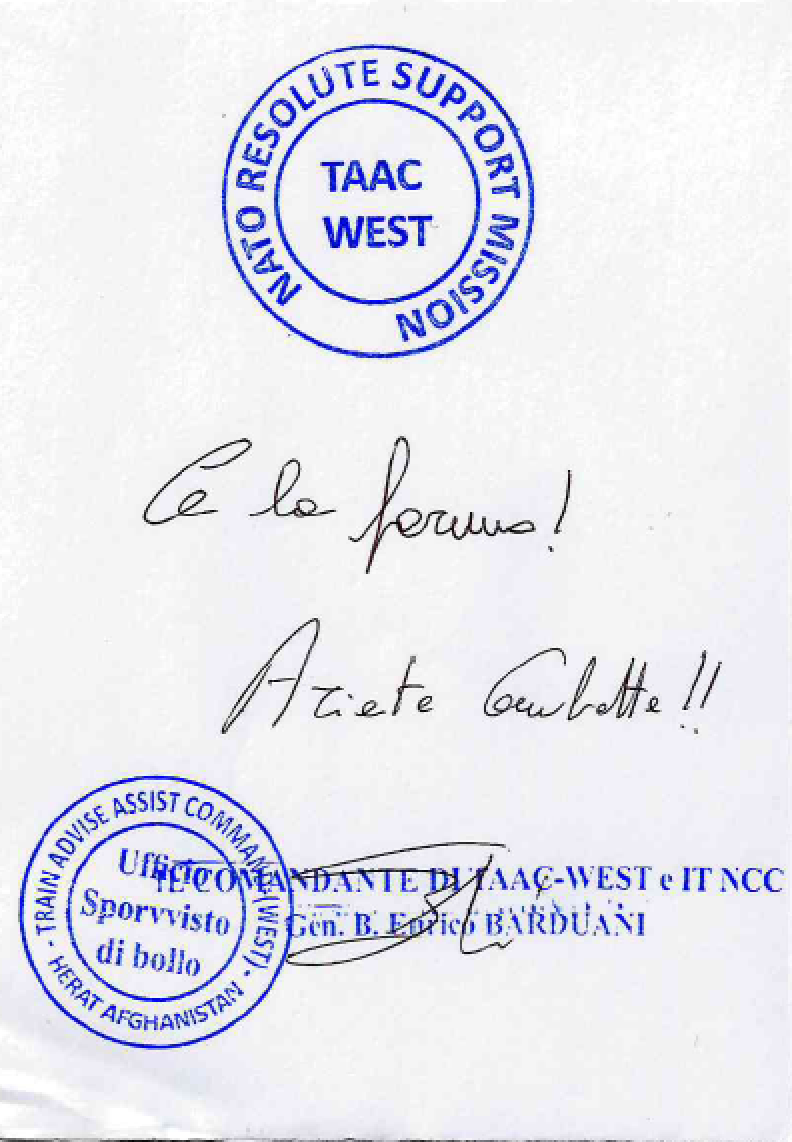 NATO RESOLUTE SUPPORT MISSION
TAAC
WEST
Ce la faremo!
Ariete Combatte!!
- TRAIN ADVISE ASSIST COMMAND (WEST) -
HERAT AFGHANISTAN
Ufficio
Sporvvisto
di bollo
IL COMANDANTE DI TAAC-WEST e IT NCC
Gen. B. Enrico BARDUANI